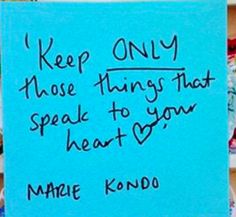 'Keep ONLY
those things that
speak to your
heart ♡'
MARIE KONDO